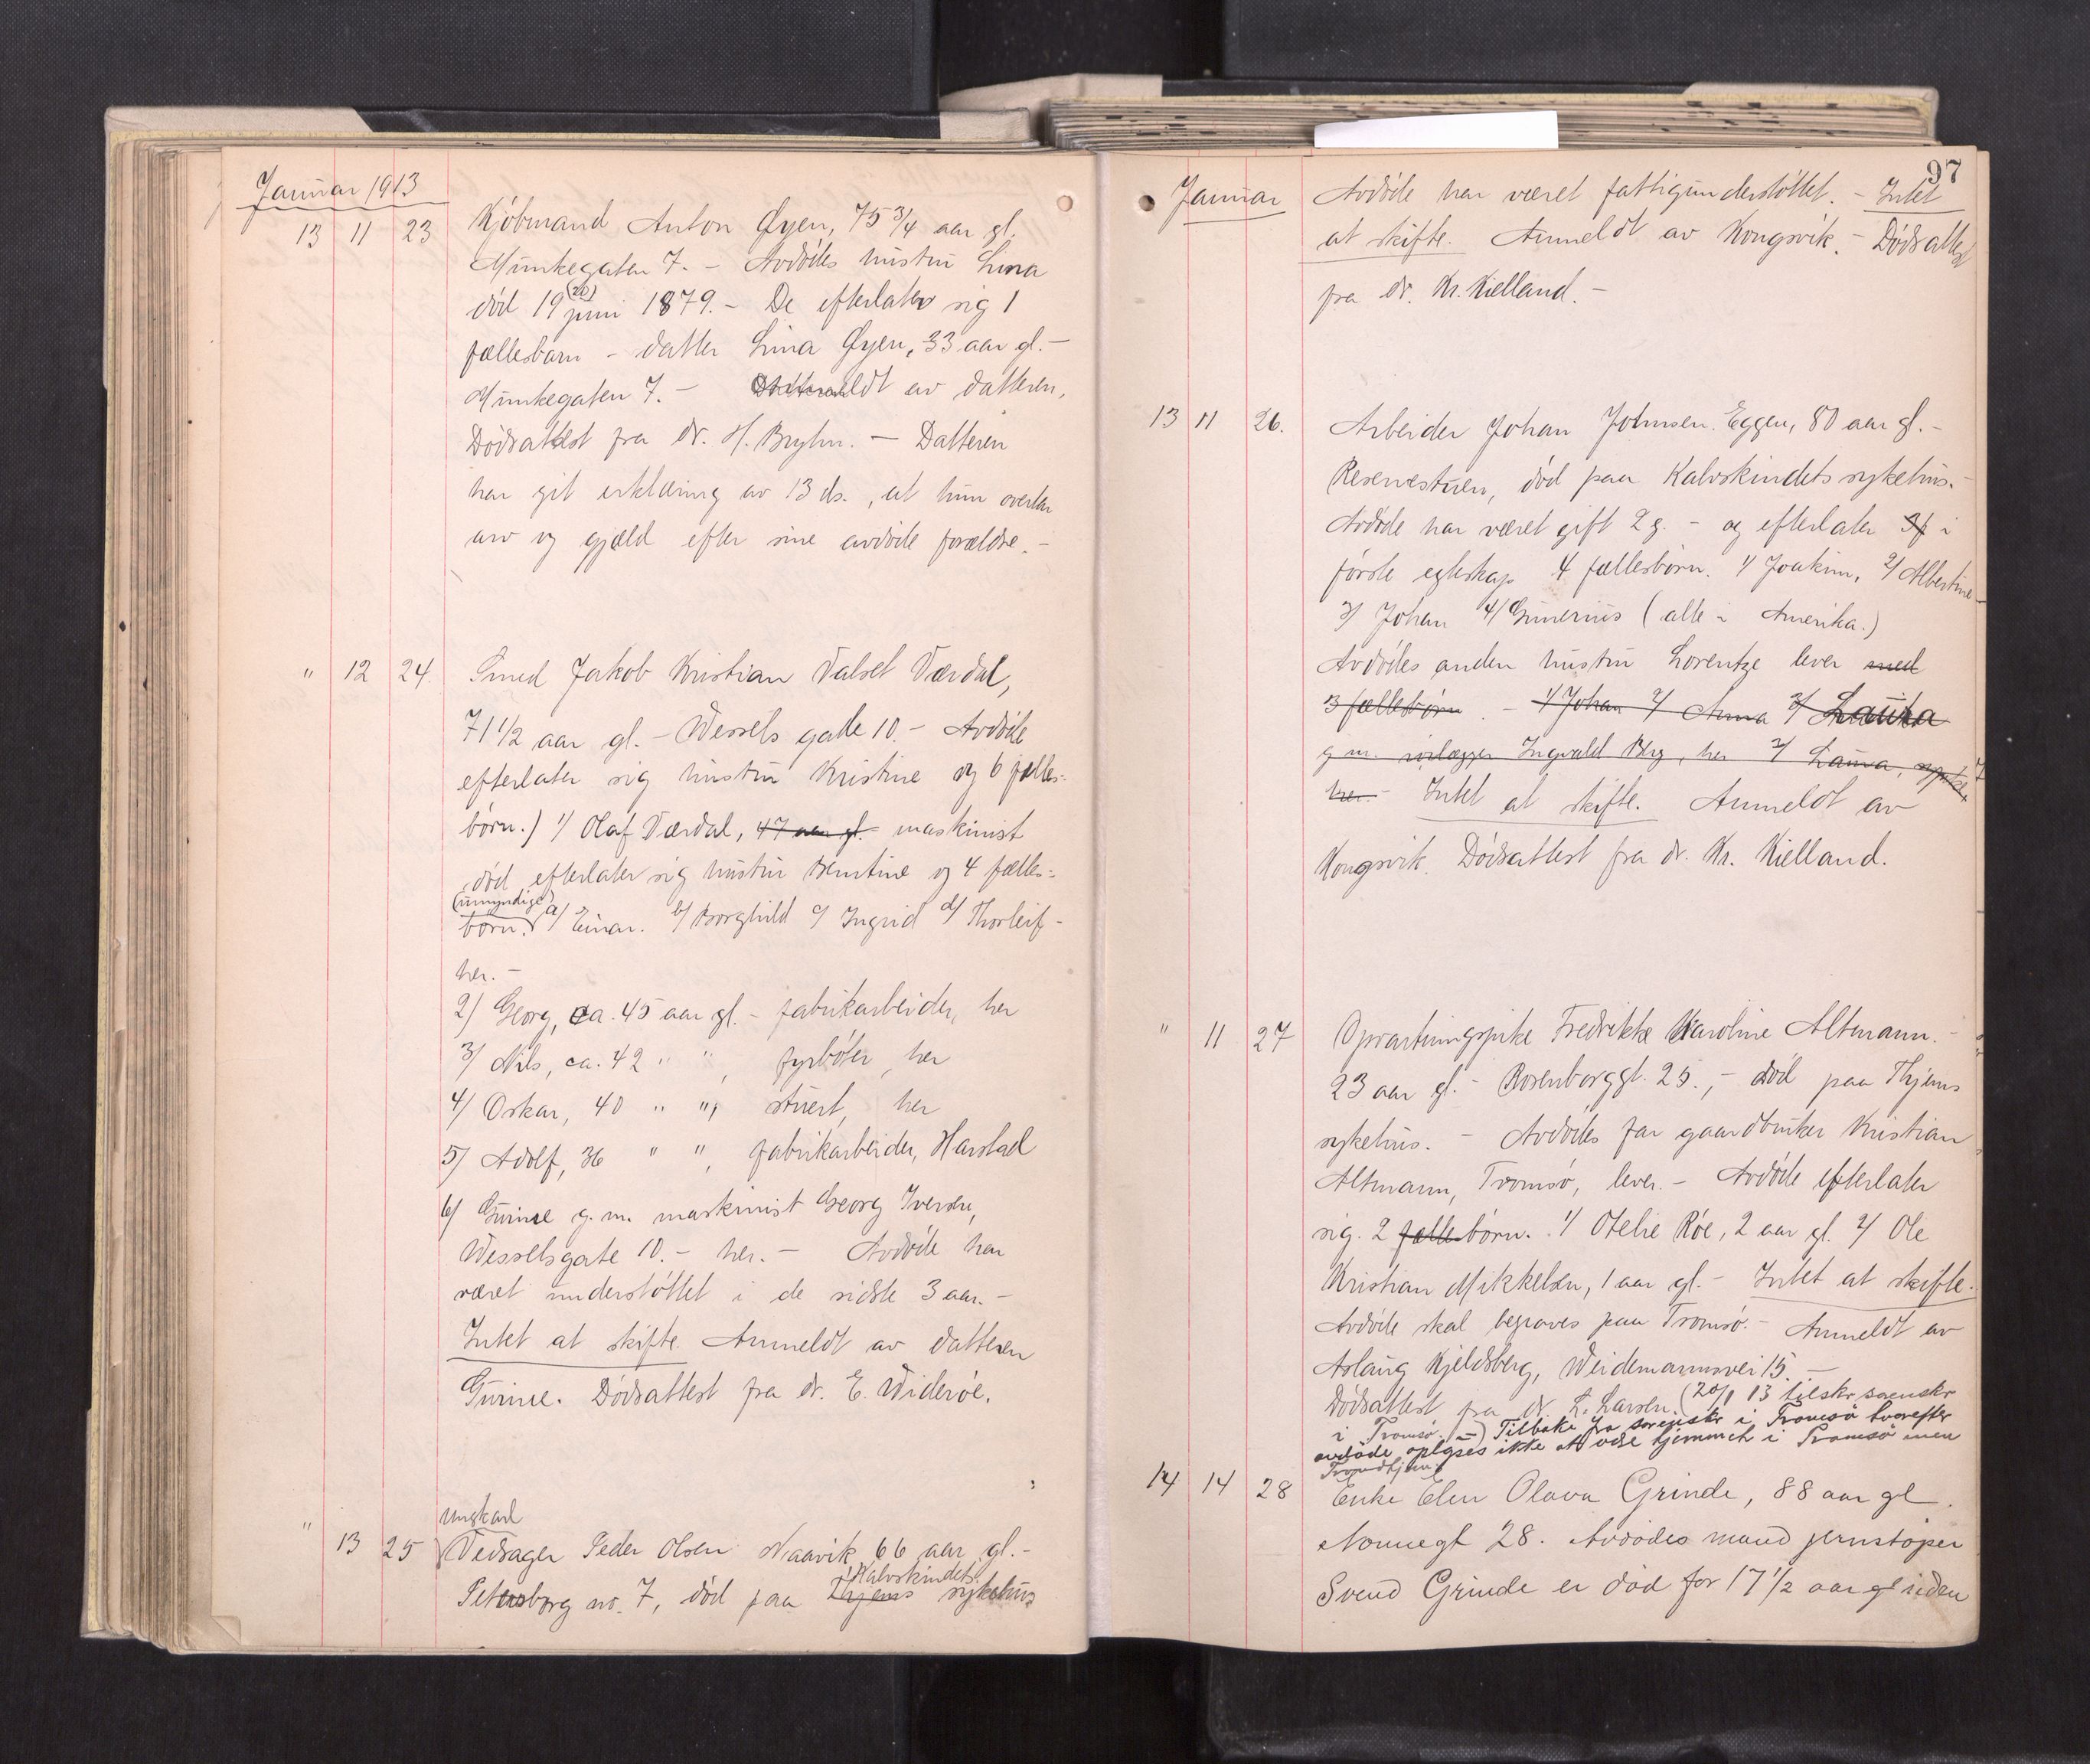 Januar 1913
13 11 23 Kjøbmand Anton Øyen, 75 3/4 aar gl.
Munkegaten 7. - Avdødes hustru Lina
død 19 (20) juni 1879. - De efterlater sig 1
fællesbarn - datter Lina Øyen, 33 aar gl. -
Munkegaten 7. - Anmeldt av datteren,
Dødsattest fra dr. H. Bryhn. - Datteren
har git erklæring av 13 ds., at hun overtar
arv og gjæld efter sine avdøde forældre. -
" 12 24. Smed Jakob Kristian Valset Værdal,
71 1/2 aar gl. - Wessels gate 10. - Avdøde
efterlater sig hustru Kristine og 6 fælles-
børn.) 1/ Olaf Værdal, 47 aar gl. - maskinist
død efterlater sig hustru Berntine og 4 fælles-
(umyndige)
børn. a/ Einar. b/ Borghild c/ Ingrid d/ Thorleif -
her. -
2/ Georg, ca. 45 aar gl. - fabrikarbeider, her
3/ Nils, ca. 42 " ", fyrbøter, her
4/ Oskar, 40 " ", stuert, her
5/ Adolf, 36 " ", fabrikarbeider, Harstad
6/ Gurine g. m. maskinist Georg Iversen,
Wesselsgate 10. - her. - Avdøde har
været understøttet i de sidste 3 aar. -
Intet at skifte. Anmeldt av datteren
Gurine. Dødsattest fra dr. E. Widerøe.
ungkarl
" 13 25 Vedsager Peder Olsen Naavik 66 aar gl. -
Kalvskindets
Petersborg no. 7, død paa Thjems sykehus
97
Januar Avdøde har været fattigunderstøttet. - Intet
at skifte. Anmeldt av Kongsvik. - Dødsattest
fra dr. Kr. Kielland. -
13 11 26. Arbeider Johan Johnsen Eggen, 80 aar gl. -
Reservestuen, død paa Kalvskindets sykehus. -
Avdøde har været gift 2 g. - og efterlater 3 f i
første egteskap 4 fællesbørn. 1/ Joakim, 2/ Albertine
3/ Johan 4/ Gunerius (alle i Amerika.)
Avdødes anden hustru Lorentze lever med
3 fællesbørn. - 1/ Johan 2/ Anna 3/ Laura
g. m. rørlægger Ingvald Berg, her 3/ Laura,
her. - Intet at skifte. Anmeldt av
Kongsvik. Dødsattest fra dr. Kr. Kielland.
" 11 27 Opvartningspike Fredrikke Karoline Altmann. -
23 aar gl. - Rosenborggt. 25., - død paa Thjems
sykehus. - Avdødes far gaardbruker Kristian
Altmann, Tromsø, lever. - Avdøde efterlater
sig 2 fælles børn. 1/ Otelie Røe, 2 aar gl. 2/ Ole
Kristian Mikkelsen, 1 aar gl. - Intet at skifte.
Avdøde skal begraves paa Tromsø. - Anmeldt av
Aslaug Kjeldsberg, Weidemannsvei 15. -
Dødsattest fra dr. L. Larsen. (20/1 13 tilskr. sorenskr
i Tromsø. -) Tilbake fra sorenskr i Tromsø hvorefter
avdøde oplyses ikke at være hjemmeh i Tromsø men
Trondhjem
14 14 28 Enke Elen Olava Grinde, 88 aar gl.
Nonnegt 28. Avdødes mand jernstøper
Svend Grinde er død for 17 1/2 aar gl siden